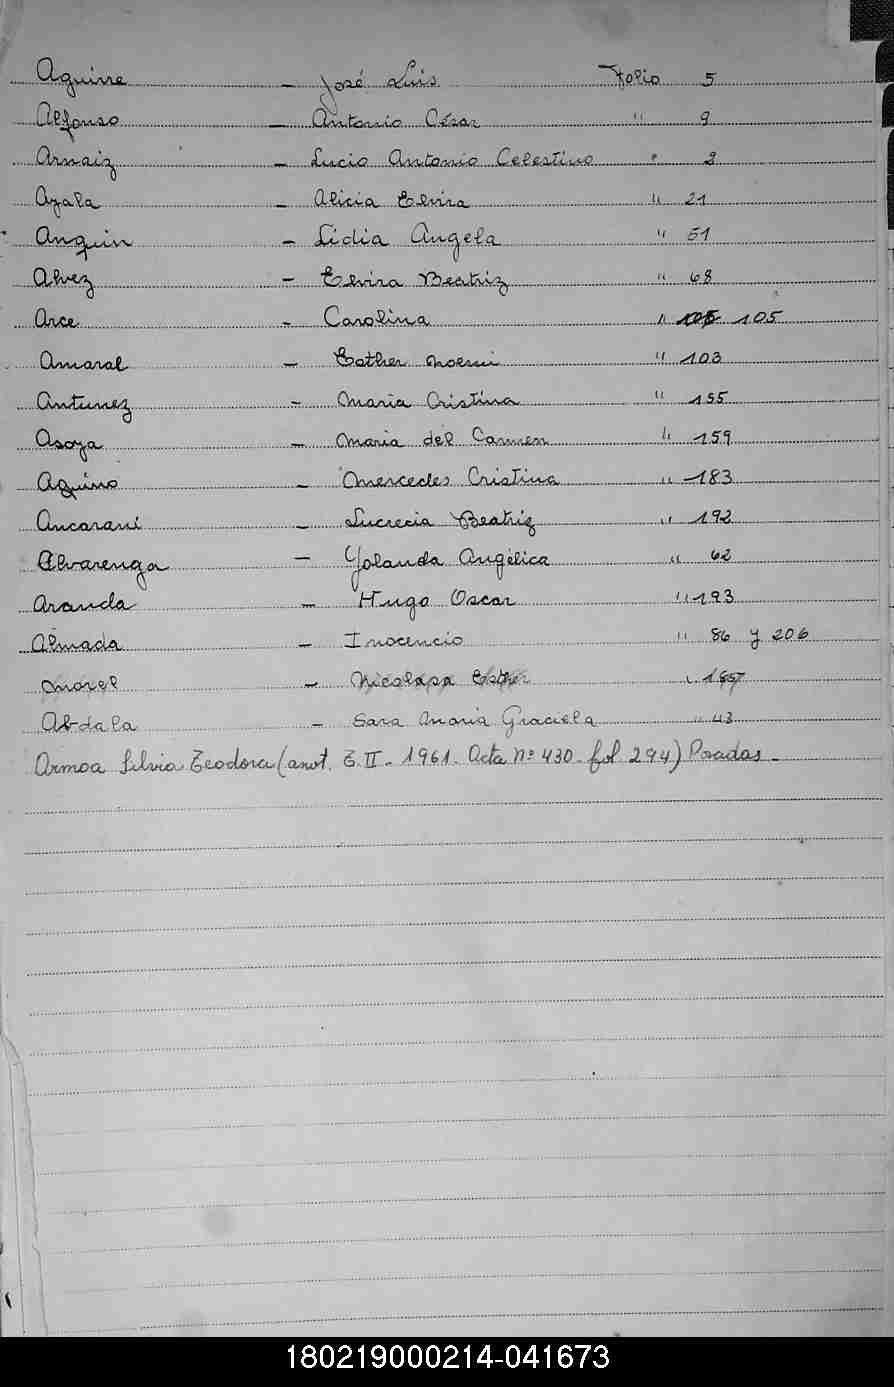 Aguirre - José Luis Folio 5
Alfonso - Antonio César " 9
Arnaiz - Lucio Antonio Celestino " 2
Ayala - Alicia Elvira " 21
Anguin - Lidia Angela " 51
Alvez - Elvira Beatriz " 68
Arce - Carolina " 105
Amaral - Esther Noemi " 103
Antunez - Maria Cristina " 155
Asoya - Maria del Carmen " 159
Aquino - Mercedes Cristina " 183
Ancarani - Lucrecia Beatriz " 192
Alvarenga - Yolanda Angélica " 62
Aranda - Hugo Oscar " 193
Almada - Inocencio " 86 y 206
Morel - Nicolasa Esther "
Abdala - Sara Maria Graciela " 43
Armoa Silvia Teodora (anot. T. II - 1961. Acta Nº 430 - fol. 294) Posadas -
180219000214-041673